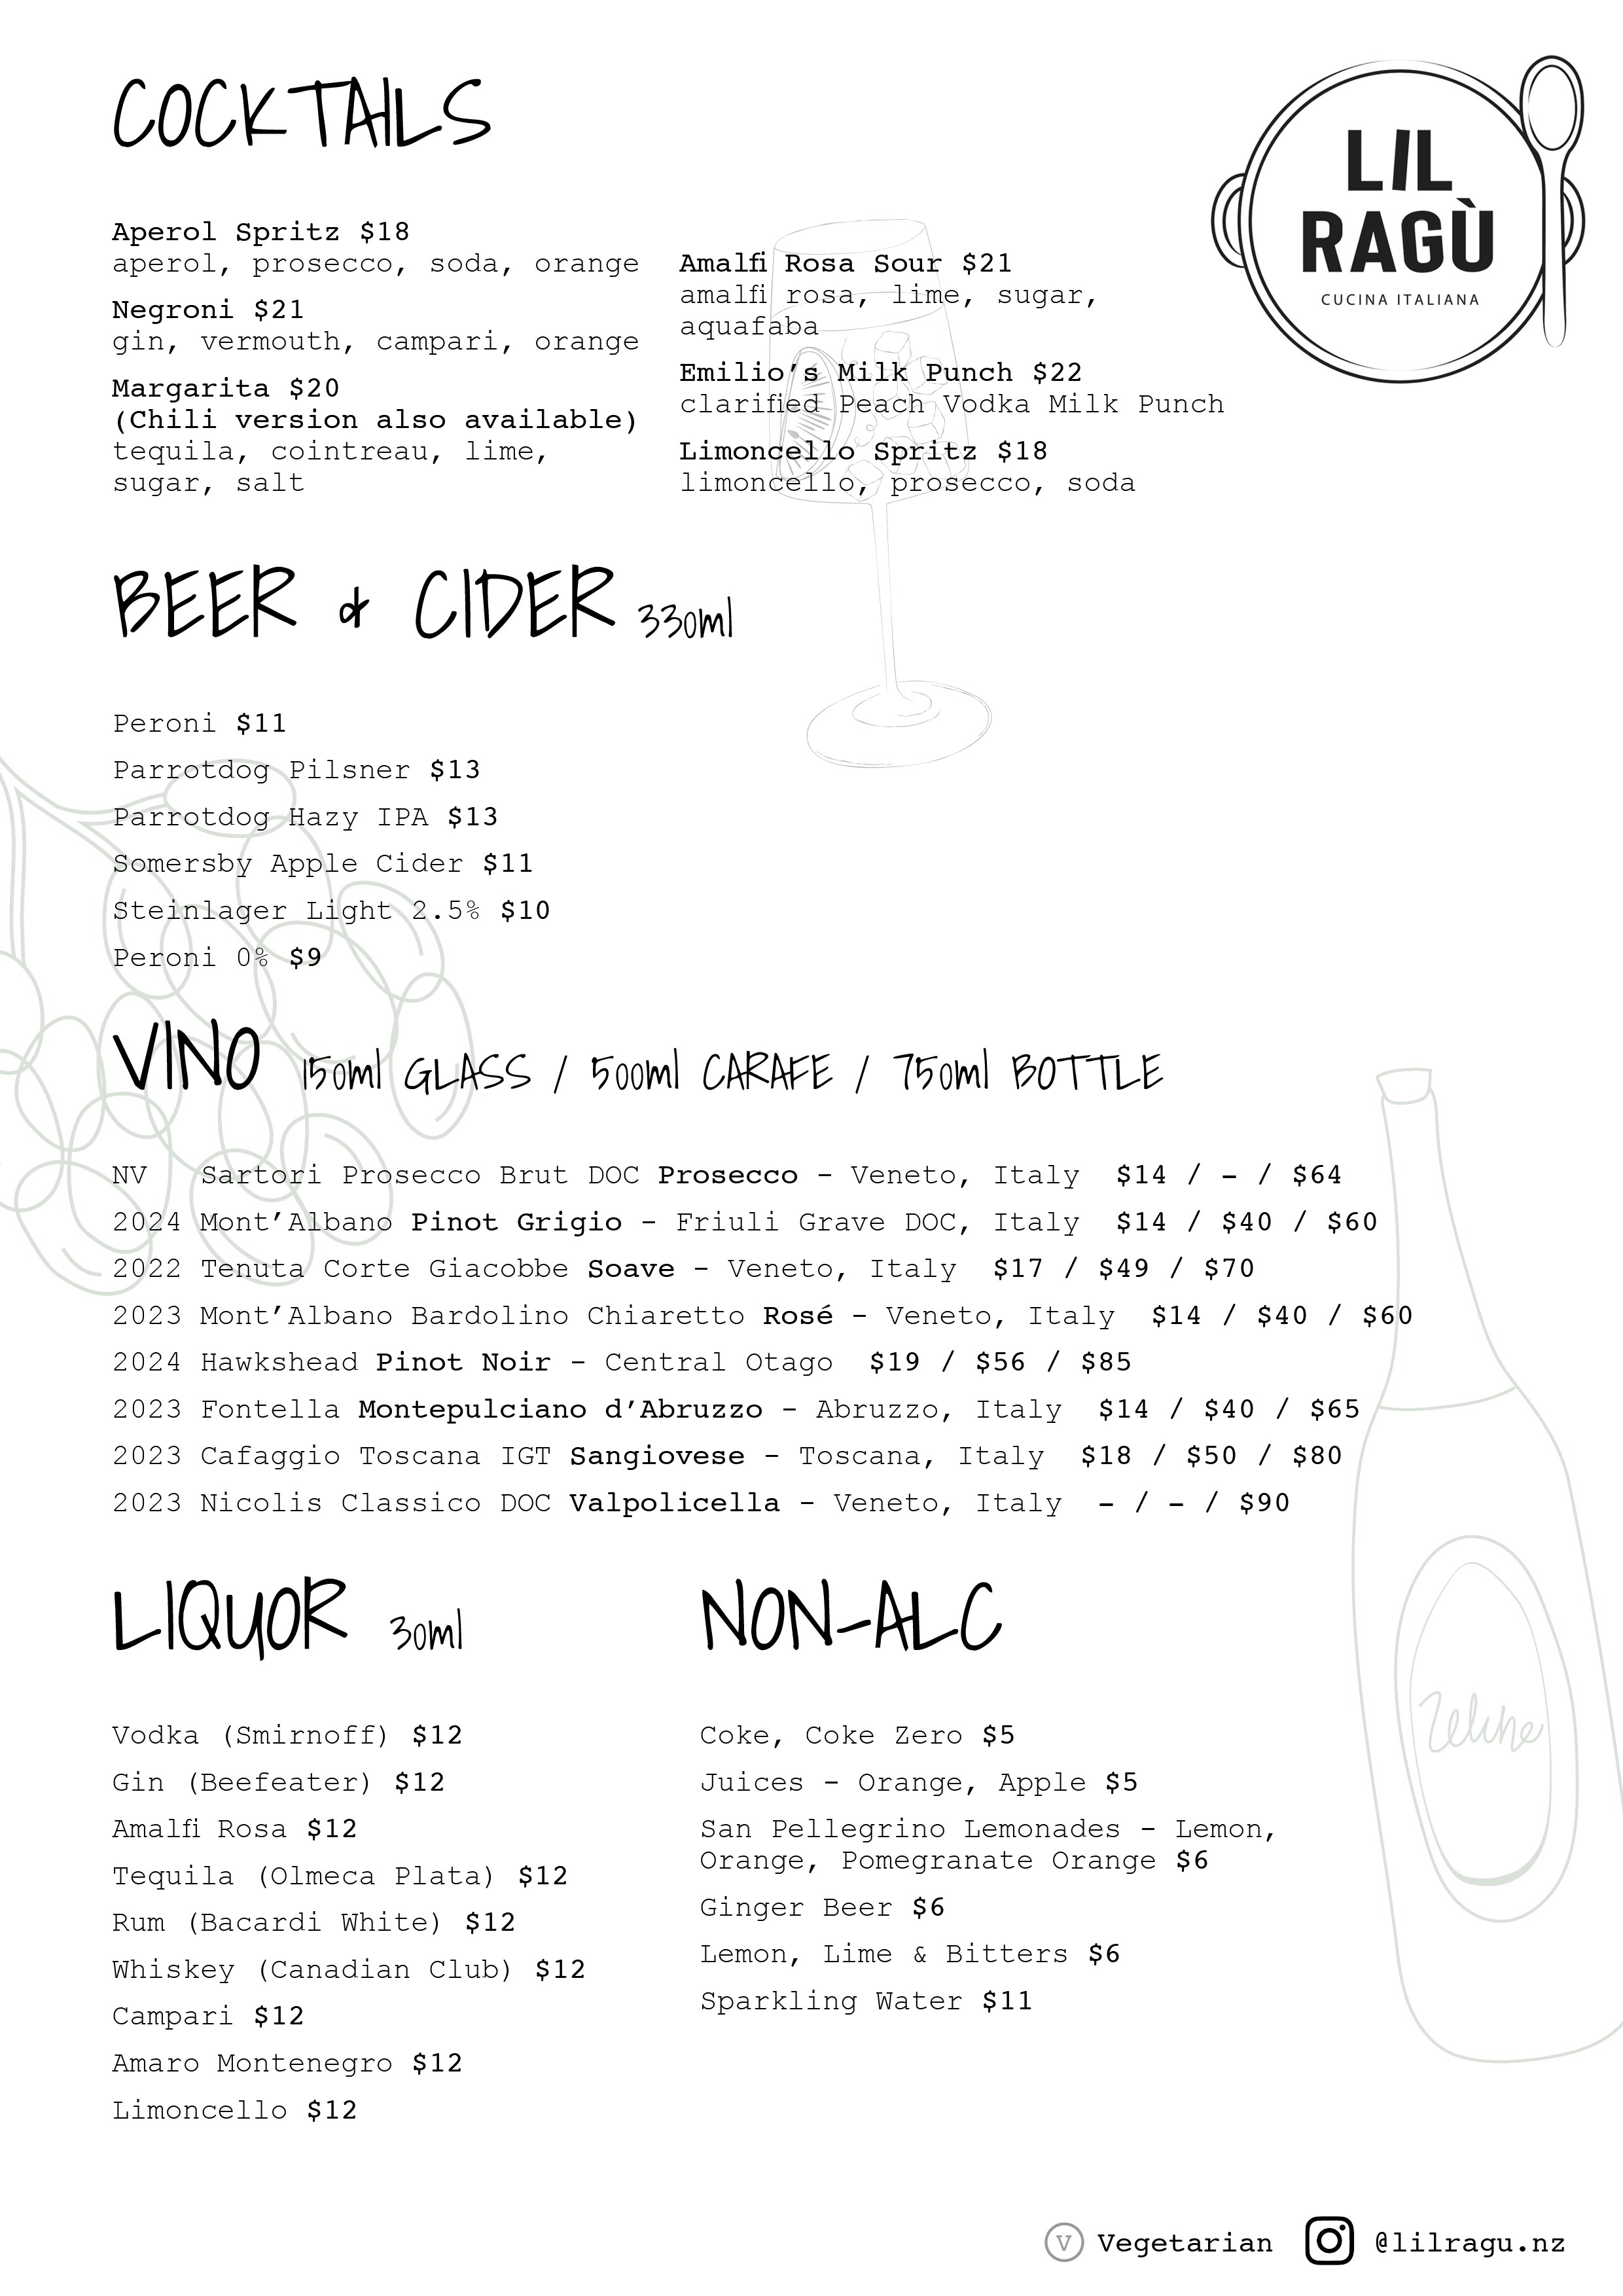 COCKTAILS
LIL
RAGÙ
CUCINA ITALIANA
Aperol Spritz $18
aperol, prosecco, soda, orange
Negroni $21
gin, vermouth, campari, orange
Margarita $20
(Chili version also available)
tequila, cointreau, lime,
sugar, salt
Amalfi Rosa Sour $21
amalfi rosa, lime, sugar,
aquafaba
Emilio’s Milk Punch $22
clarified Peach Vodka Milk Punch
Limoncello Spritz $18
limoncello, prosecco, soda
BEER & CIDER 330ml
Peroni $11
Parrotdog Pilsner $13
Parrotdog Hazy IPA $13
Somersby Apple Cider $11
Steinlager Light 2.5% $10
Peroni 0% $9
VINO 150ml GLASS / 500ml CARAFE / 750ml BOTTLE
NV Sartori Prosecco Brut DOC Prosecco - Veneto, Italy $14 / - / $64
2024 Mont’Albano Pinot Grigio - Friuli Grave DOC, Italy $14 / $40 / $60
2022 Tenuta Corte Giacobbe Soave - Veneto, Italy $17 / $49 / $70
2023 Mont’Albano Bardolino Chiaretto Rosé - Veneto, Italy $14 / $40 / $60
2024 Hawkshead Pinot Noir - Central Otago $19 / $56 / $85
2023 Fontella Montepulciano d’Abruzzo - Abruzzo, Italy $14 / $40 / $65
2023 Cafaggio Toscana IGT Sangiovese - Toscana, Italy $18 / $50 / $80
2023 Nicolis Classico DOC Valpolicella - Veneto, Italy - / - / $90
LIQUOR 30ml
Vodka (Smirnoff) $12
Gin (Beefeater) $12
Amalfi Rosa $12
Tequila (Olmeca Plata) $12
Rum (Bacardi White) $12
Whiskey (Canadian Club) $12
Campari $12
Amaro Montenegro $12
Limoncello $12
NON-ALC
Coke, Coke Zero $5
Juices - Orange, Apple $5
San Pellegrino Lemonades - Lemon,
Orange, Pomegranate Orange $6
Ginger Beer $6
Lemon, Lime & Bitters $6
Sparkling Water $11
V Vegetarian @lilragu.nz